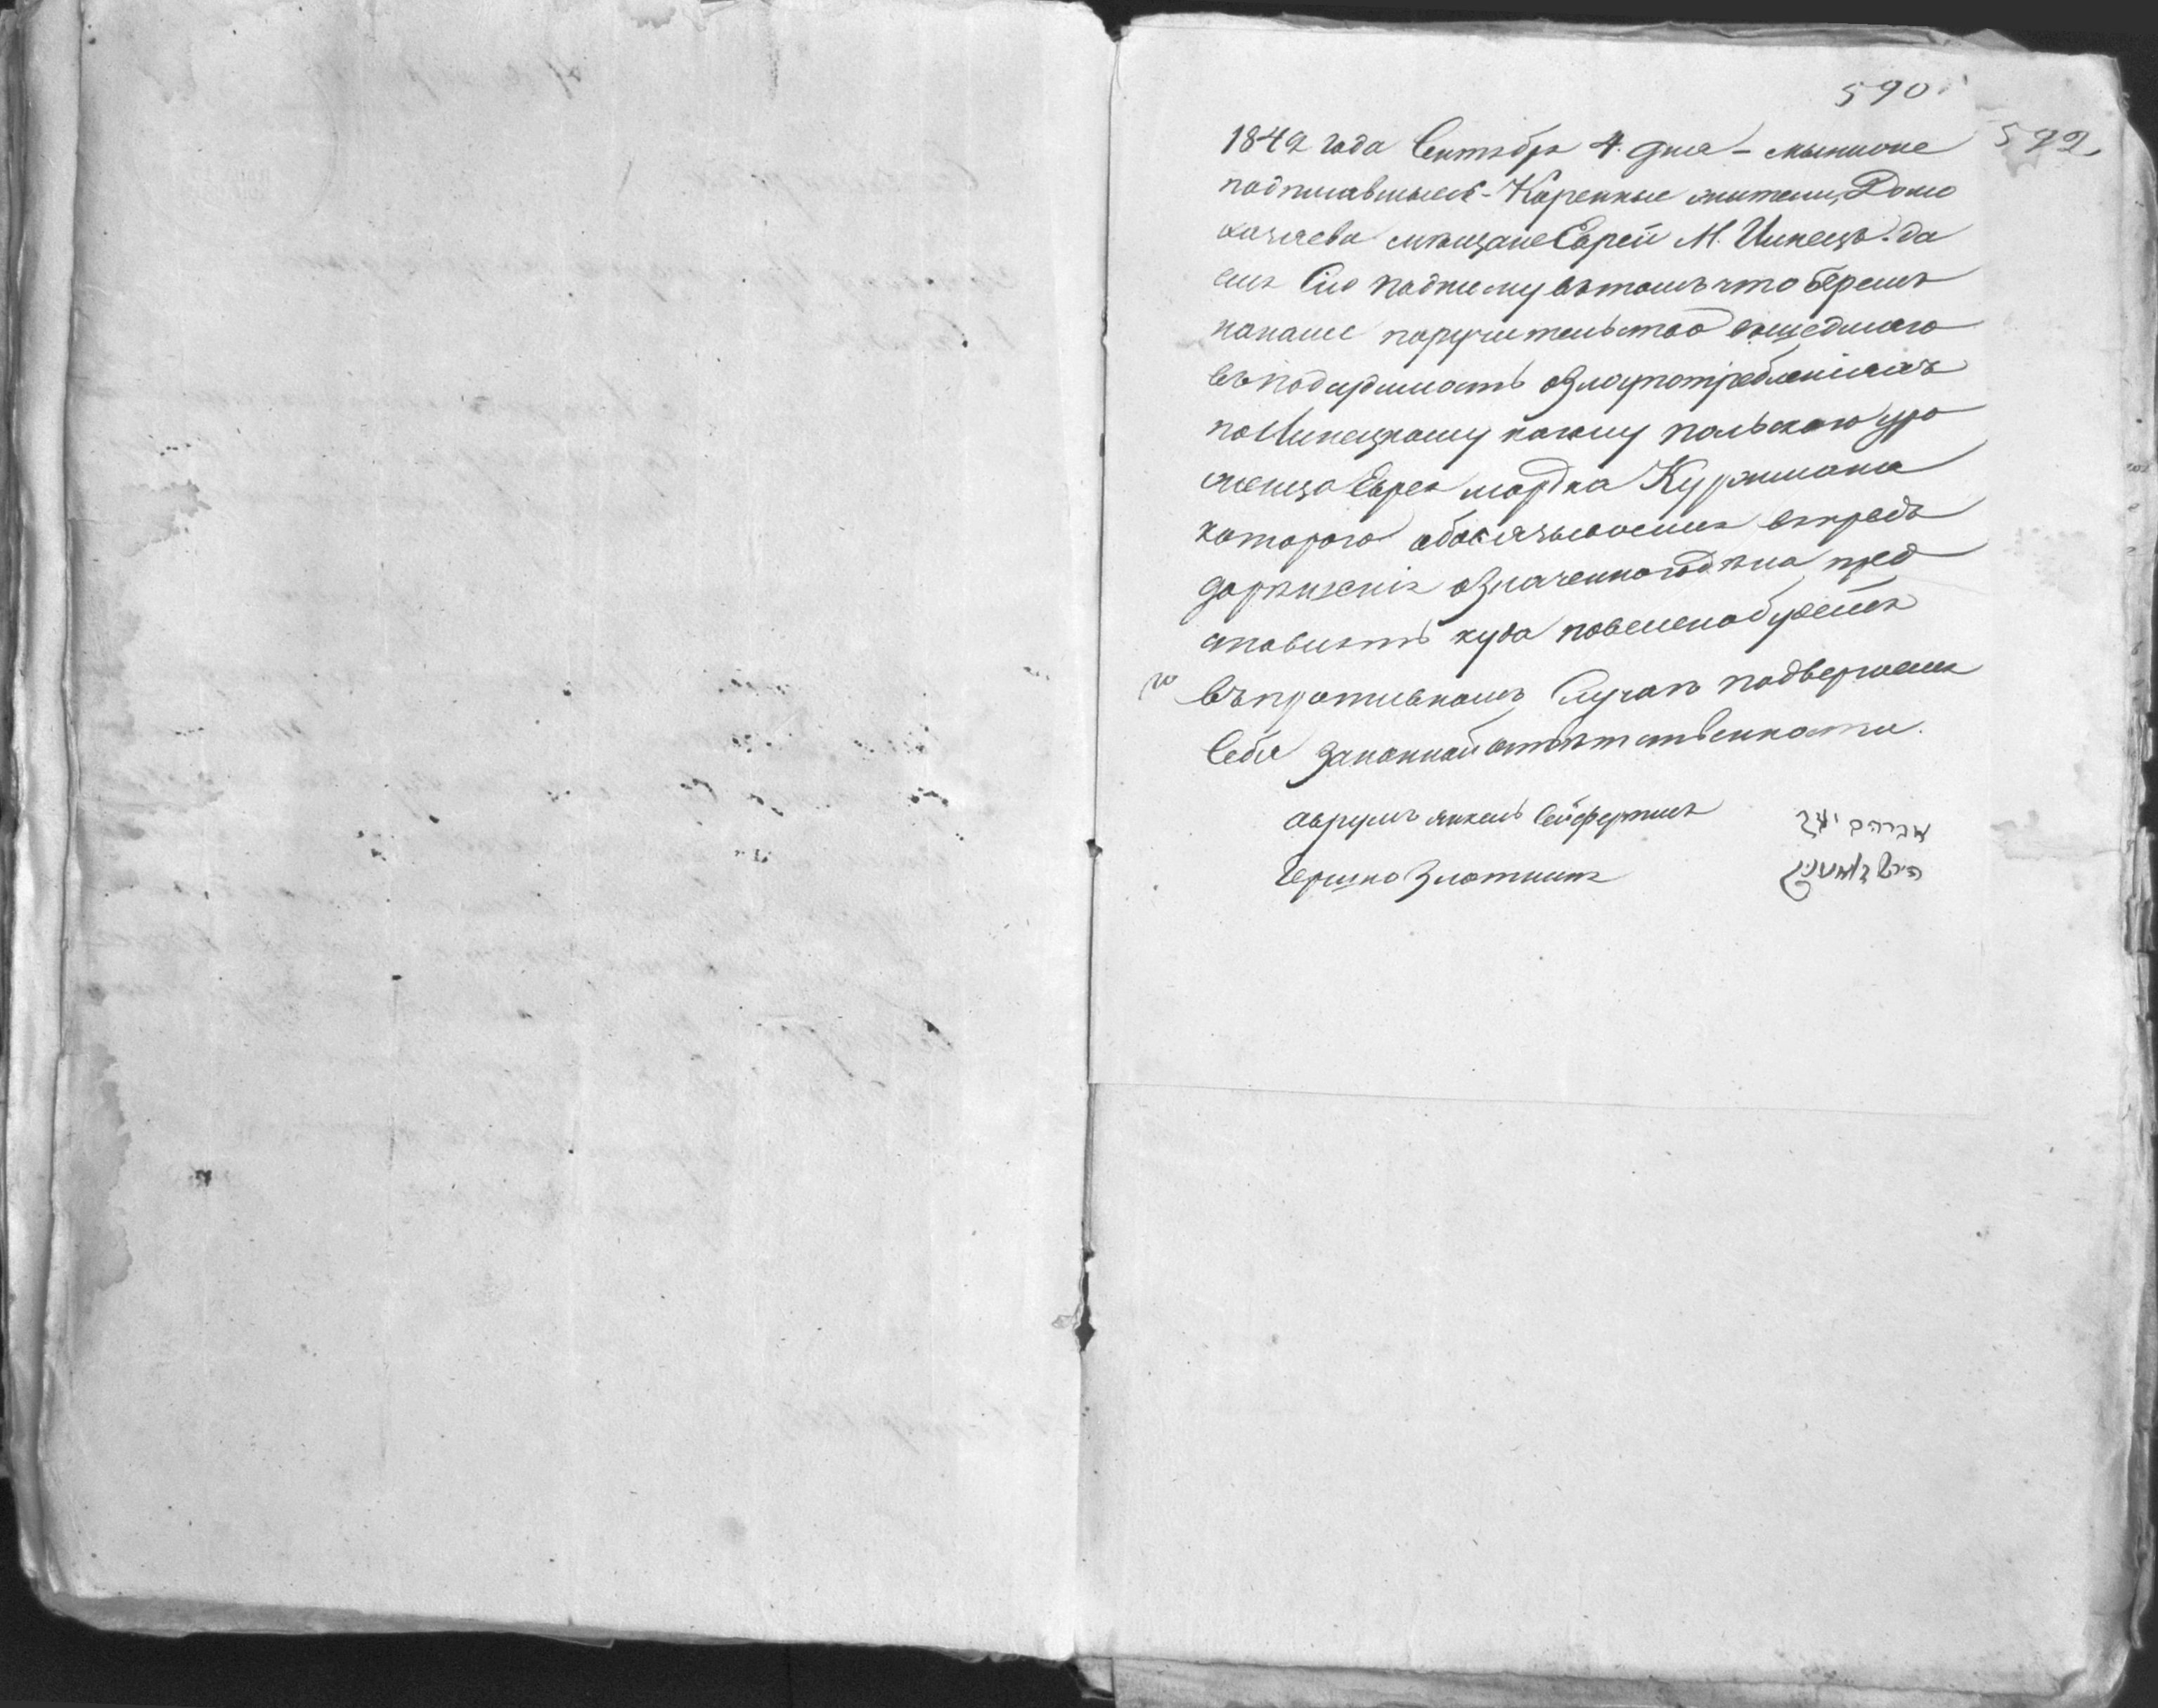 590
592
1849 года Сентября 4. дня – мы ниже
подписавшыеся – Коренные жители, Домо
хозяева мещане Евреи М. Чинецъ. да
емъ Сию подписку въ томъ что беремъ
на наше поручительство вшедшаго
въ подсудимость озлоупотребленіяхъ
по Липецкому кагалу польскаго уро
женца Еврея мордка Куржмана
котораго обовязываемся впредь
дорѣшенія означеннаго дѣла пред
ставлять куда повелено будетъ
въ противномъ Случаѣ подвергаемъ
Себя Законной ответственности.
Аврумъ янкель Сейфермик
Гершко Злотникъ
אברהם יעקב